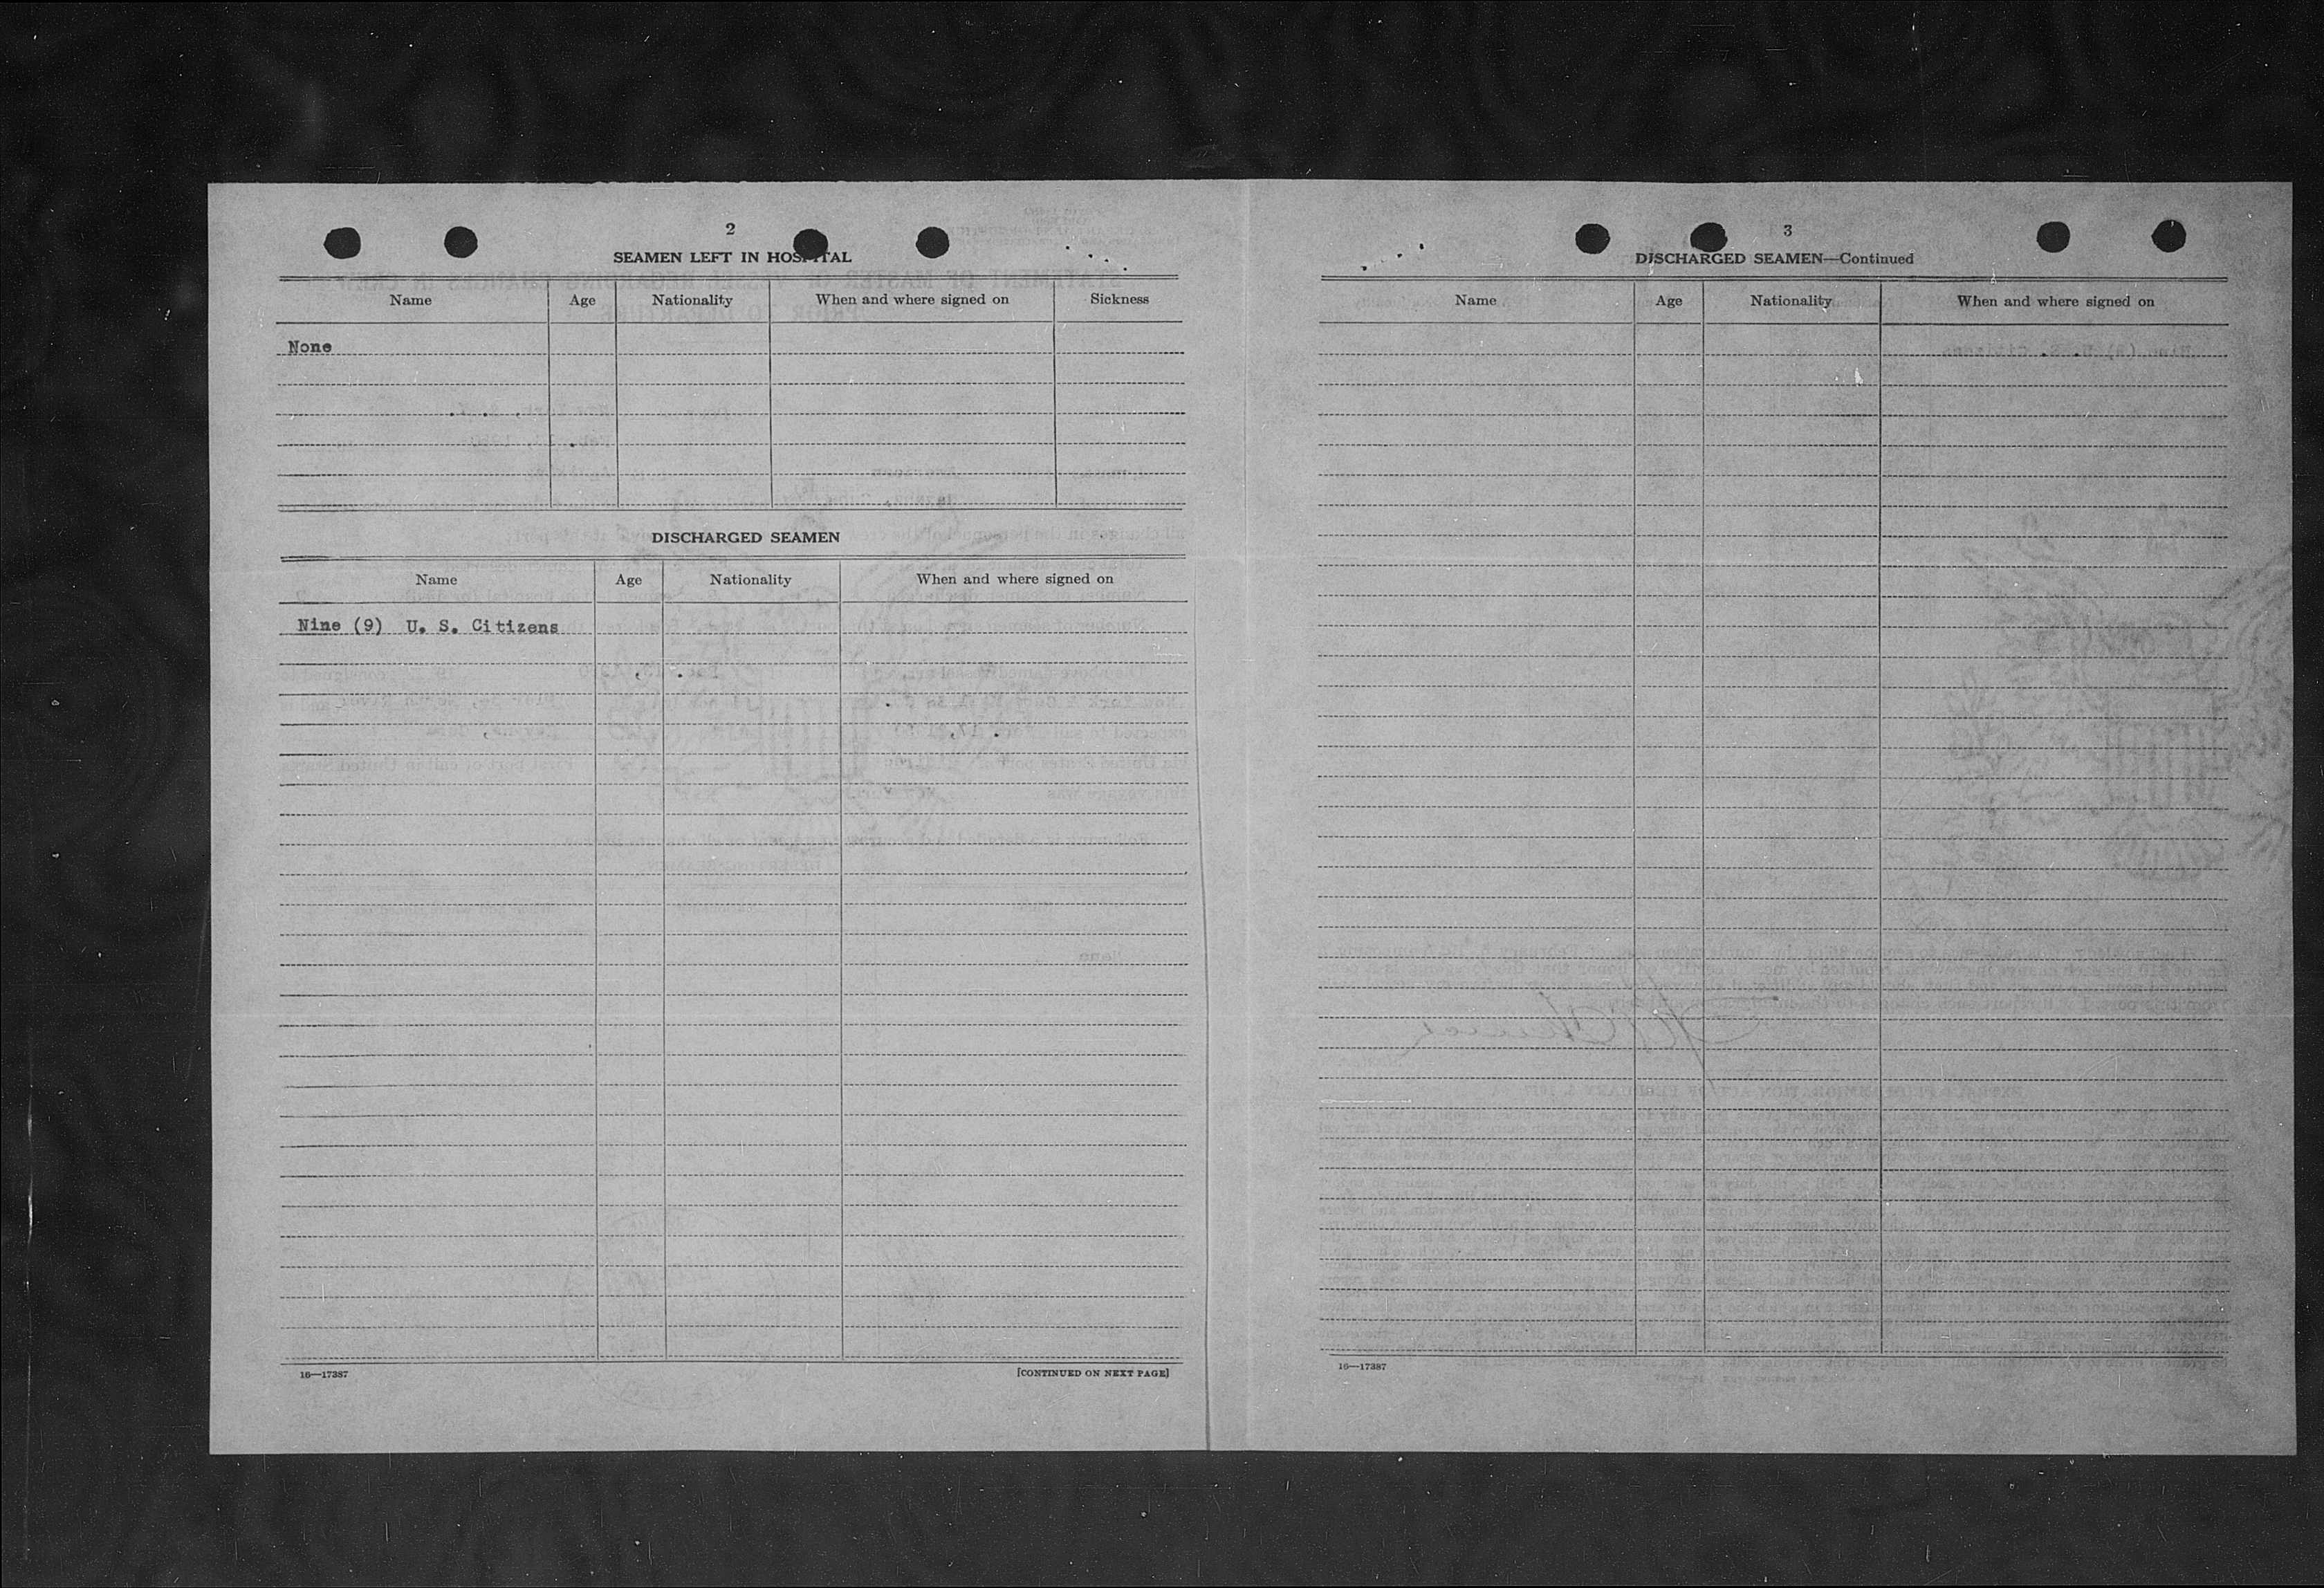 2
SEAMEN LEFT IN HOSPITAL
Name Age Nationality When and where signed on Sickness
None
DISCHARGED SEAMEN
Name Age Nationality When and where signed on
Nine (9) U. S. Citizens
16—17387 [CONTINUED ON NEXT PAGE]
3
DISCHARGED SEAMEN—Continued
Name Age Nationality When and where signed on
16—17387